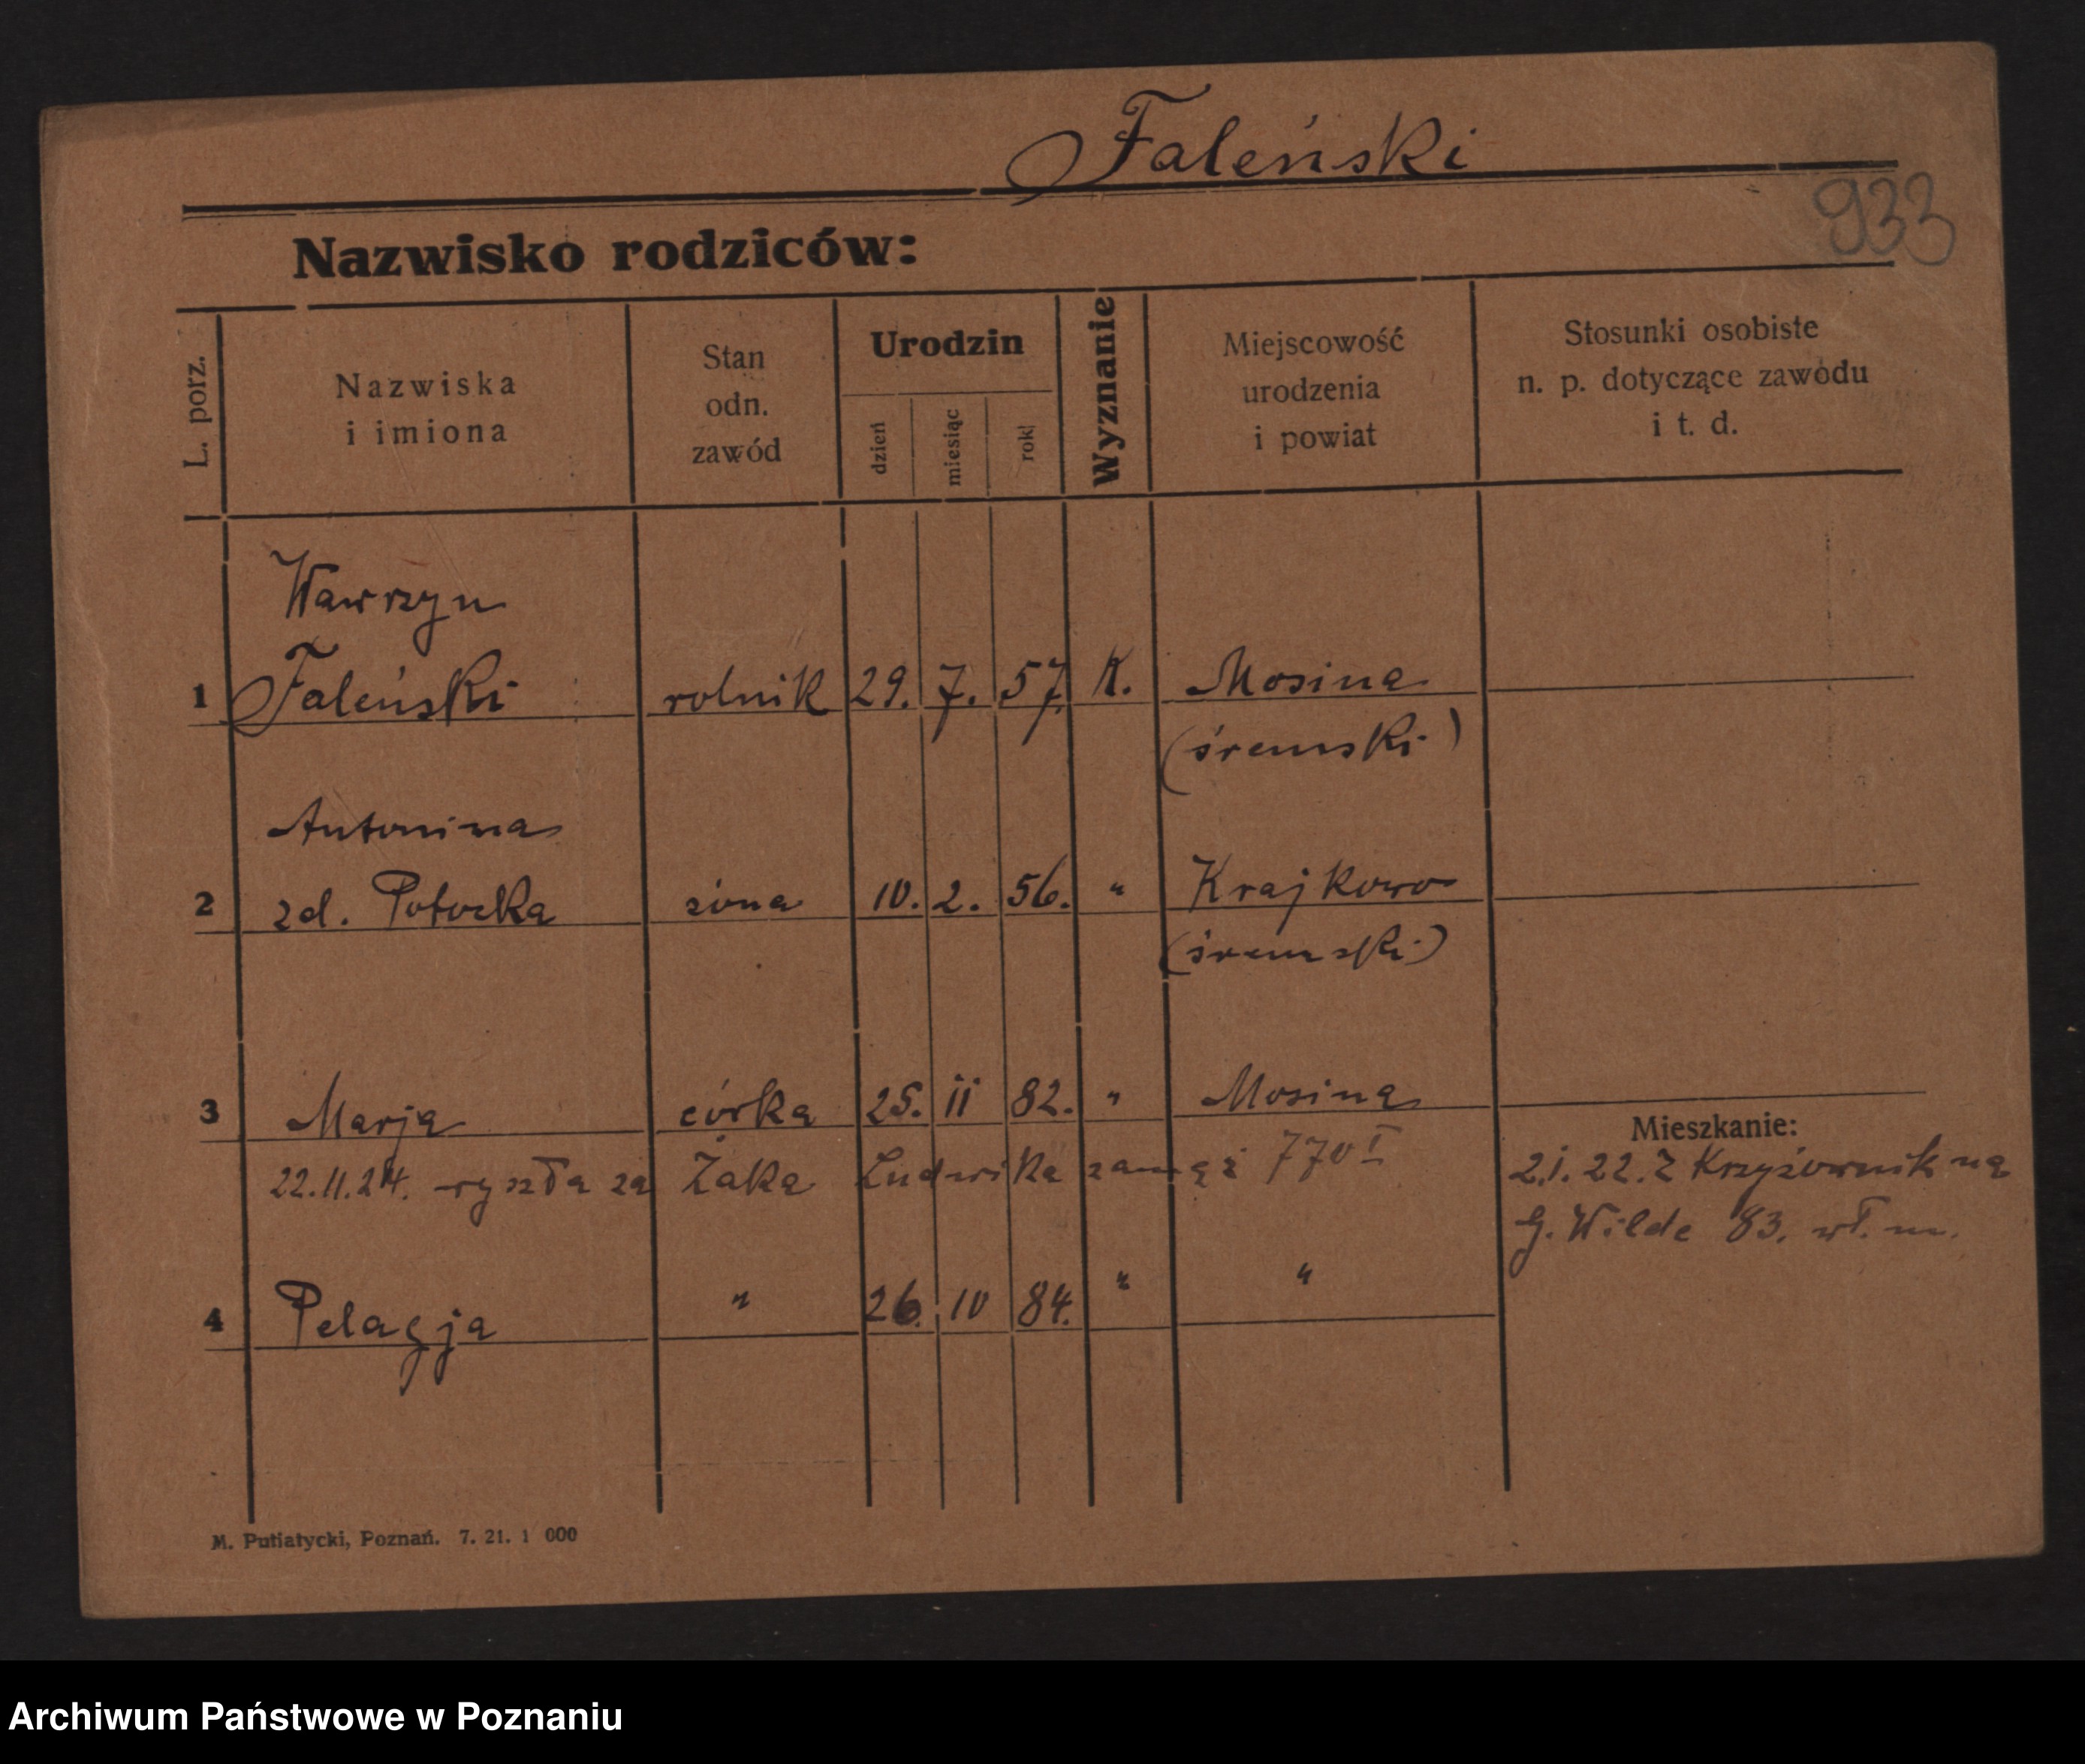 Faleński
933
Nazwisko rodziców:
L. porz.
Nazwiska
i imiona
Stan
odn.
zawód
Urodzin
dzień
miesiąc
rok
Wyznanie
Miejscowość
urodzenia
i powiat
Stosunki osobiste
n. p. dotyczące zawodu
i t. d.
Wawrzyn
1 Faleński rolnik 29. 7. 57. K. Mosina
(śremski)
Antonina
2 zd. Potocka żona 10. 2. 56. " Krajkowo
(śremski)
3 Marja córka 25. 11 82. " Mosina
Mieszkanie:
22.11.24. wyszła za Żaka Ludwika zamąż 770 I
2.1.22. z Krzyżownik na
G. Wilde 83. wł. m.
4 Pelagja " 26. 10 84. " "
M. Putiatycki, Poznań. 7. 21. 1 000
Archiwum Państwowe w Poznaniu